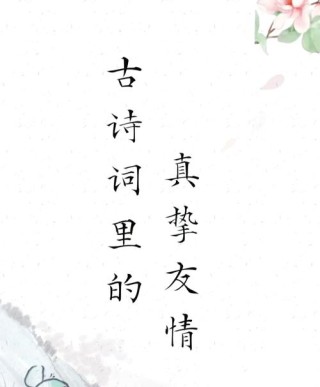 古诗词里的
真挚友情